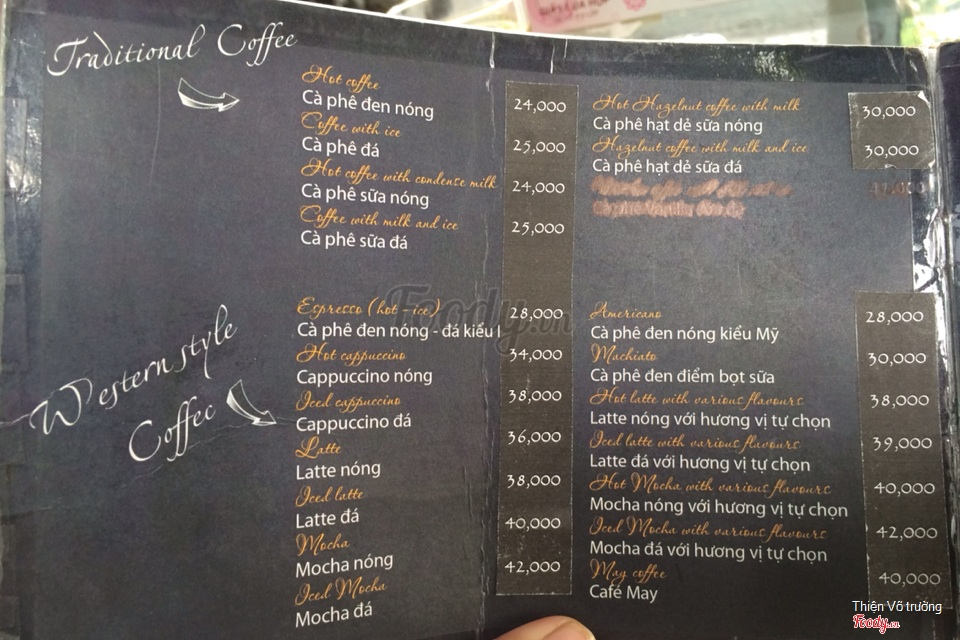 Traditional Coffee
Hot coffee
Cà phê đen nóng 24,000
Coffee with ice
Cà phê đá 25,000
Hot coffee with condense milk
Cà phê sữa nóng 24,000
Coffee with milk and ice
Cà phê sữa đá 25,000
Hot Hazelnut coffee with milk 30,000
Cà phê hạt dẻ sữa nóng
Hazelnut coffee with milk and ice 30,000
Cà phê hạt dẻ sữa đá
Western style
Coffee
Espresso (hot - ice) 28,000
Cà phê đen nóng - đá kiểu
Hot cappuccino 34,000
Cappuccino nóng
Iced cappuccino 38,000
Cappuccino đá
Latte 36,000
Latte nóng
Iced latte 38,000
Latte đá
Mocha 40,000
Mocha nóng
Iced Mocha 42,000
Mocha đá
Americano 28,000
Cà phê đen nóng kiểu Mỹ
Machiato 30,000
Cà phê đen điểm bọt sữa
Hot latte with various flavours 38,000
Latte nóng với hương vị tự chọn
Iced latte with various flavours 39,000
Latte đá với hương vị tự chọn
Hot Mocha with various flavours 40,000
Mocha nóng với hương vị tự chọn
Iced Mocha with various flavours 42,000
Mocha đá với hương vị tự chọn
May coffee 40,000
Café May
Foody.vn
Thiện Võ trường
Foody.vn